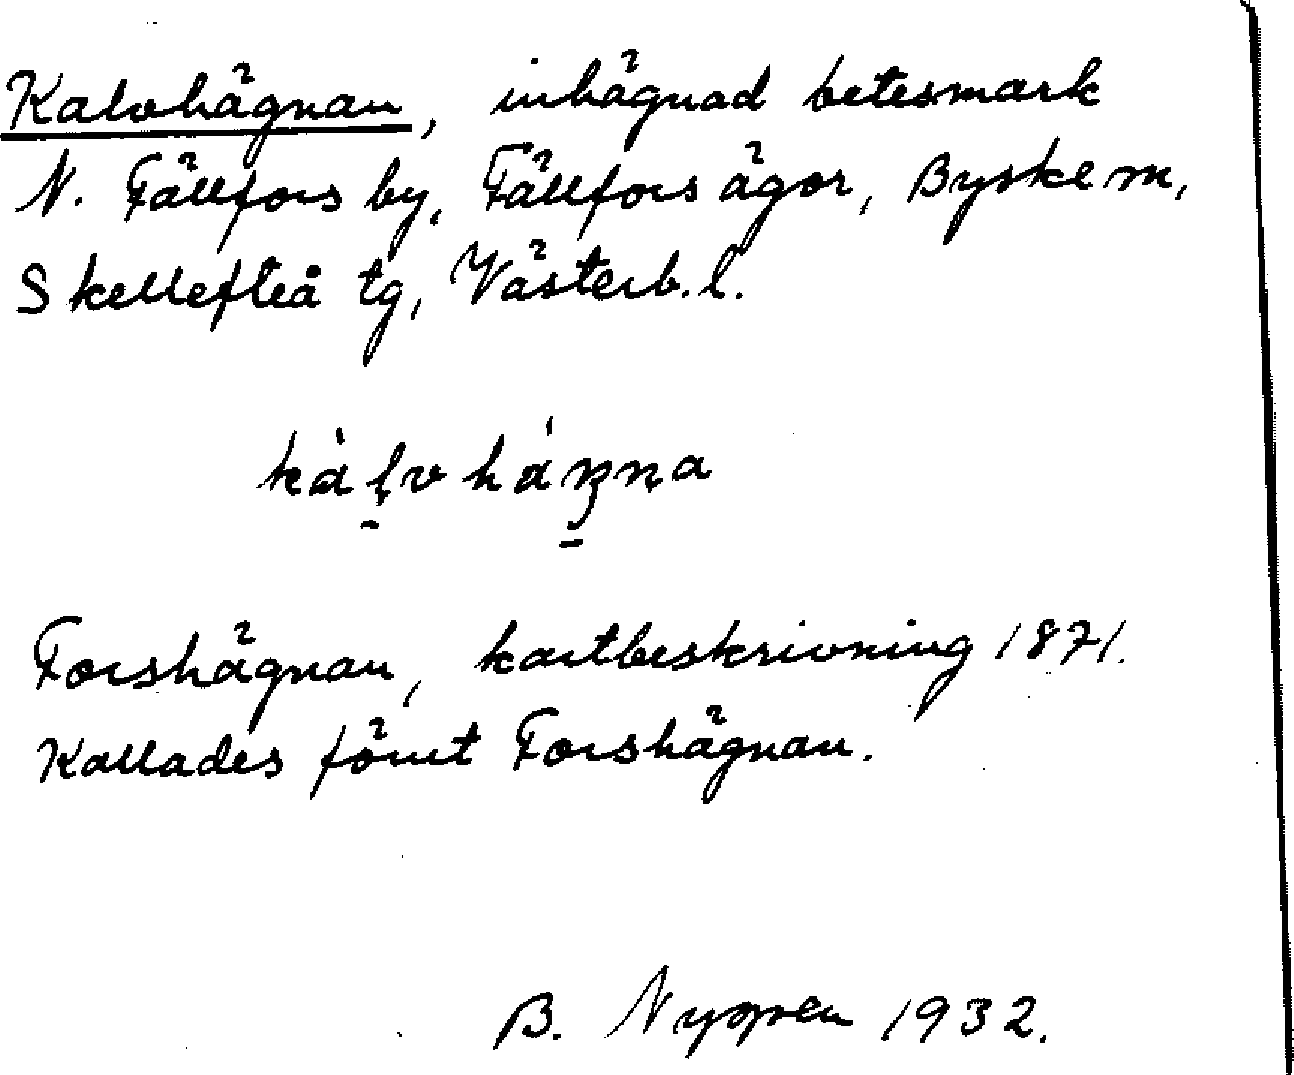 Kalvhägnan, inhägnad betesmark
N. Fällfors by, Fällfors ägor, Byske sn,
Skellefteå tg, Västerb. l.
Forshägnan, kartbeskrivning 1871.
Kallades förut Forshägnan.
B. 1932.